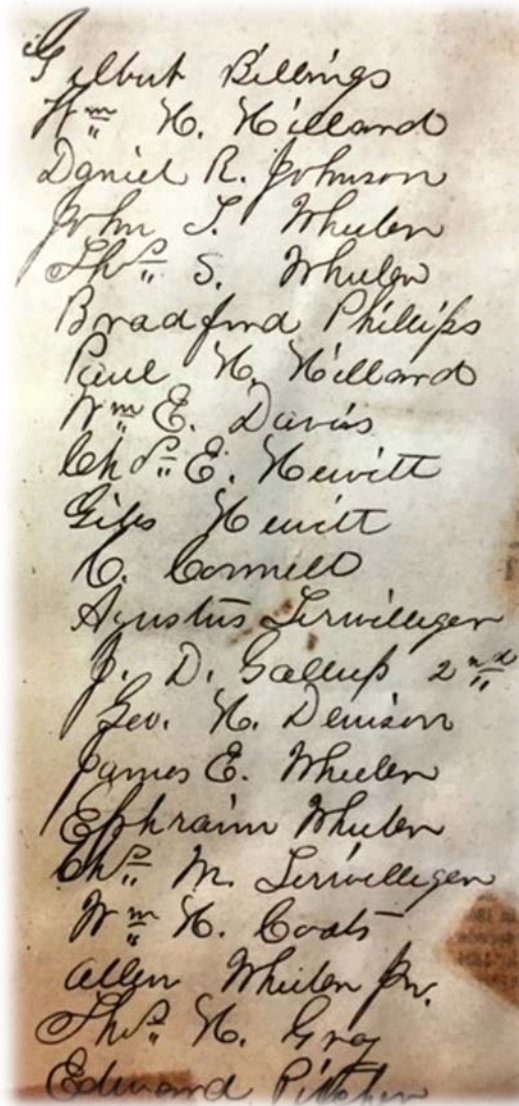 Gilbert Billings
Wm H. Hillard
Daniel R. Johnson
John T. Wheeler
Thos S. Wheeler
Bradford Phillips
Paul H. Hillard
Wm E. Davis
Chas E. Hewitt
Giles Hewitt
C. Connell
Agustus Terwilleger
J. D. Gallup 2nd
Geo. H. Denison
James E. Wheeler
Ephraim Wheeler
Chs M. Terwilleger
Wm H. Coats
Allen Wheeler Jr.
Thos H. Gray
Edward Pitcher